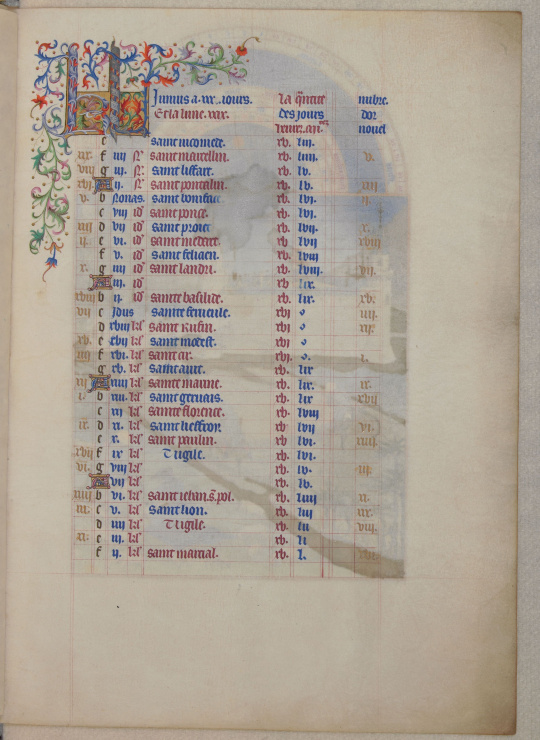 Junius a. xxx. iours. La q̃ntite nubre.
Et la lune. xxix. des iours dor
heur. an. nouel
e saint nicomede. xv. liii.
xix. f iiii N̄. saint marcellin. xv. liiii. v.
viii g iii. N̄. saint liffart. xv. lv.
xvi. A ii. N̄. saint pontalin. xv. lv. xiii
v. b Nonas. saint boniface xv. lvi. ii
c viii id saint ponce. xv. lvi.
xiii d vii id saint proiet xv. lvii x.
ii. e vi. id saint medart. xv. lvii xviii
f v. id saint felicien. xv. lviii
x. g iiii id saint landri. xv. lviii. vii.
A iii. id xv. lix.
xviii b ii. id sainte basilide. xv. lix. xv.
vii c Idus sainte fenicule. xvi o iiii.
d xviii kl saint Rufin. xvi o xii.
xv. e xvii kl saint modest. xvi o
iiii f xvi. kl saint cir. xvi o. i.
g xv. kl saint auit. xv. lix
xii A xiiii kl sainte marine. xv. lix. ix.
i. b xiii. kl saint geruais. xv. lix xvii
c xii kl sainte florence. xv. lviii
ix. d xi. kl saint lieffroy. xv. lvii vi.
e x. kl saint paulin. xv. lvi. xiiii.
xvii f ix kl Vigile. xv. lvi.
vi. g viii kl xv. lv. iii.
A vii kl xv. lv.
xiiii b vi. kl saint iehan .s. pol. xv. liiii xi.
iii. c v. kl saint lion. xv. liii xix.
d iiii kl Vigile. xv. lii viii.
xi. e iii. kl xv. li
f ii. kl saint marcial. xv. l. xvi.